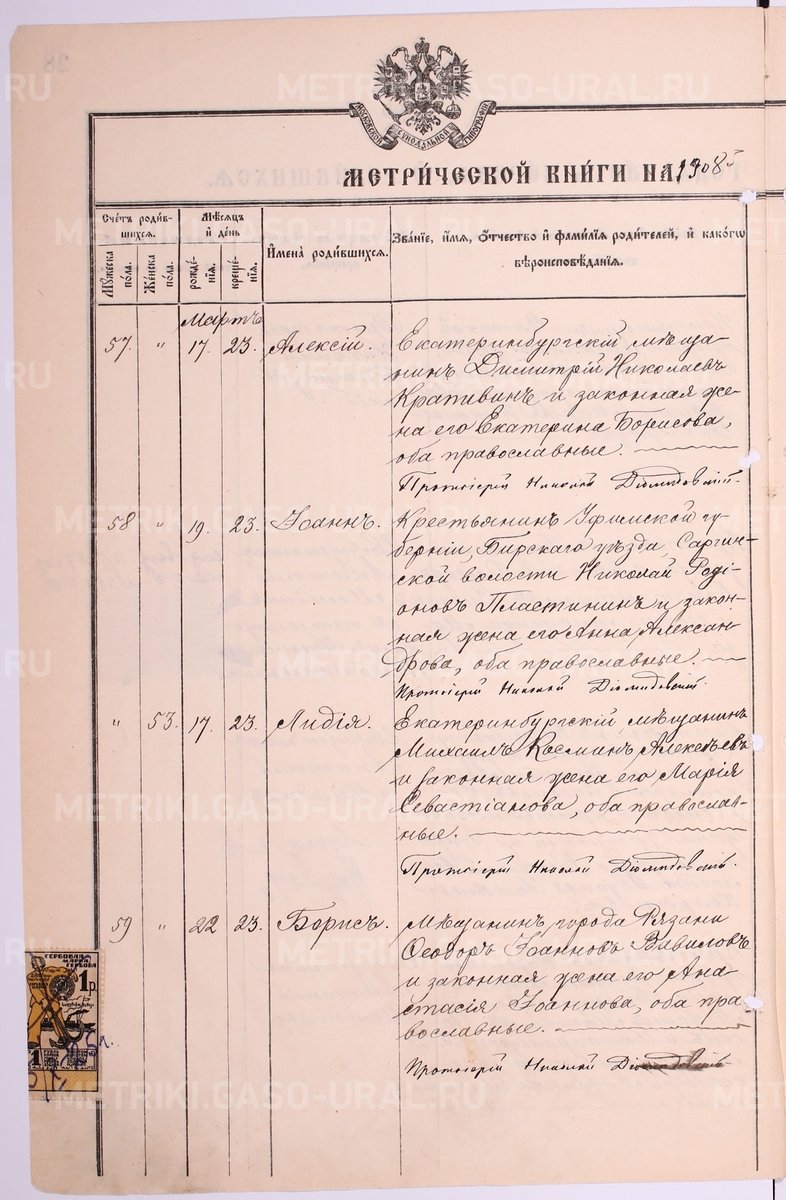 МОСКОВСКОЙ СѴНОДАЛЬНОЙ ТИПОГРАФІИ
МЕТРИ́ЧЕСКОЙ КНИ́ГИ НА 1908 г
Сче́тъ роди́в-
шихсѧ.
Мѣ́сѧцъ
и҆ де́нь
И҆мена̀ роди́вшихсѧ.
Зва́нїе, и҆́мѧ, ѻ҆́тчество и҆ фами́лїѧ роди́телей, и҆ како́гѡ
вѣроисповѣ́данїѧ.
Мꙋ́жеска
по́ла.
Же́нска
по́ла.
рожде́-
нїѧ.
креще́-
нїѧ.
Мартъ
57. " 17. 23. Алексій. Екатеринбургскій мѣща-
нинъ Димитрій Николаевъ
Крапивинъ и законная же-
на его Екатерина Борисова,
оба православные.
Протоіерій Николай Діомидовскій.
58 " 19. 23. Іоаннъ. Крестьянинъ Уфимской гу-
берніи, Бирскаго уѣзда, Саргин-
ской волости Николай Роді-
оновъ Пластининъ и закон-
ная жена его Анна Алексан-
дрова, оба православные.
Протоіерій Николай Діомидовскій.
" 53. 17. 23. Лидія. Екатеринбургскій мѣщанинъ
Михаилъ Косминъ Алексѣевъ
и законная жена его Марія
Севастіанова, оба православ-
ные.
Протоіерій Николай Діомидовскій.
59 " 22 23. Борисъ. Мѣщанинъ города Рязани
Ѳеодоръ Іоанновъ Вавиловъ
и законная жена его Ана-
стасія Іоаннова, оба пра-
вославные.
Протоіерій Николай Діомидовскій
ГЕРБОВАЯ
МАРКА
1 р.
METRIKI.GASO-URAL.RU